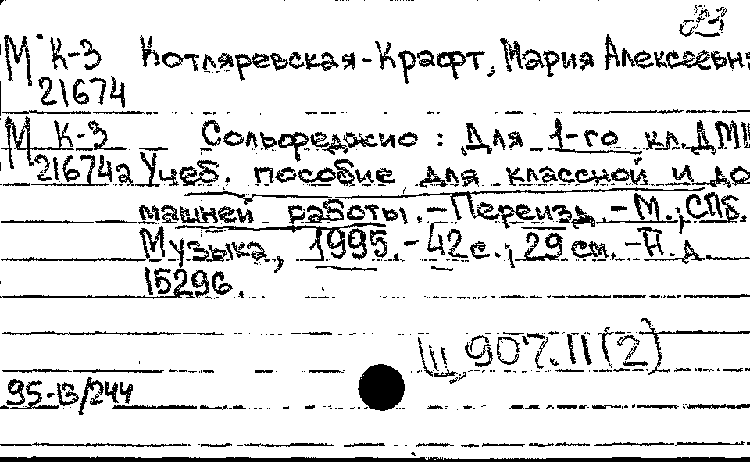 23
М К-3 Котляревская-Крафт, Мария Алексеевн
21674
М К-3 Сольфеджио : Для 1-го кл. ДМШ
21674а Учеб. пособие для классной и до
машней работы. - Переизд. - М.; СПб.
Музыка, 1995. - 42 с.; 29 см. - Н. д.
15296.
Щ 907.11(2)
95-13/244